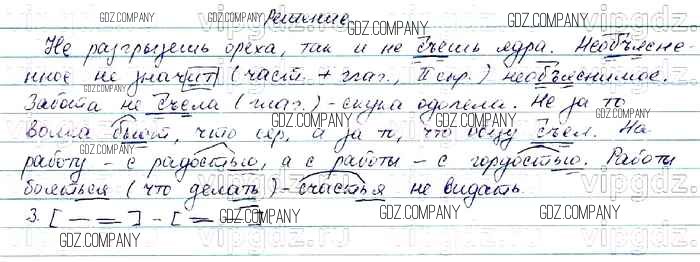 Решение
Не разгрызёшь ореха, так и не съешь ядра. Необъясне-
нное не значит (част. + глаг., II спр.) необъяснимое.
Забота не съела (глаг.) - скука одолела. Не за то
волка бьют, что сер, а за то, что овцу съел. На
работу - с радостью, а с работы - с гордостью. Работы
бояться (что делать) - счастья не видать.
3. [— =] - [= =]
GDZ.COMPANY
GDZ.COMPANY
GDZ.COMPANY
GDZ.COMPANY
GDZ.COMPANY
GDZ.COMPANY
GDZ.COMPANY
GDZ.COMPANY
GDZ.COMPANY
GDZ.COMPANY
GDZ.COMPANY
GDZ.COMPANY
GDZ.COMPANY
vipgdz.ru